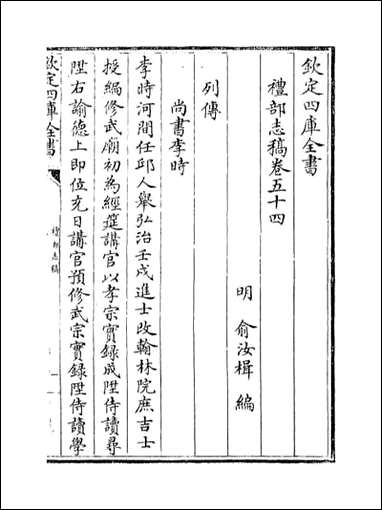 欽定四庫全書
禮部志稿卷五十四
明 俞汝楫 編
列傳
尚書李時
李時河間任邱人舉弘治壬戌進士改翰林院庶吉士
授編修武廟初為經筵講官以孝宗實錄成陞侍讀尋
陞右諭德上即位充日講官預修武宗實錄陞侍讀學
欽定四庫全書
禮部志稿